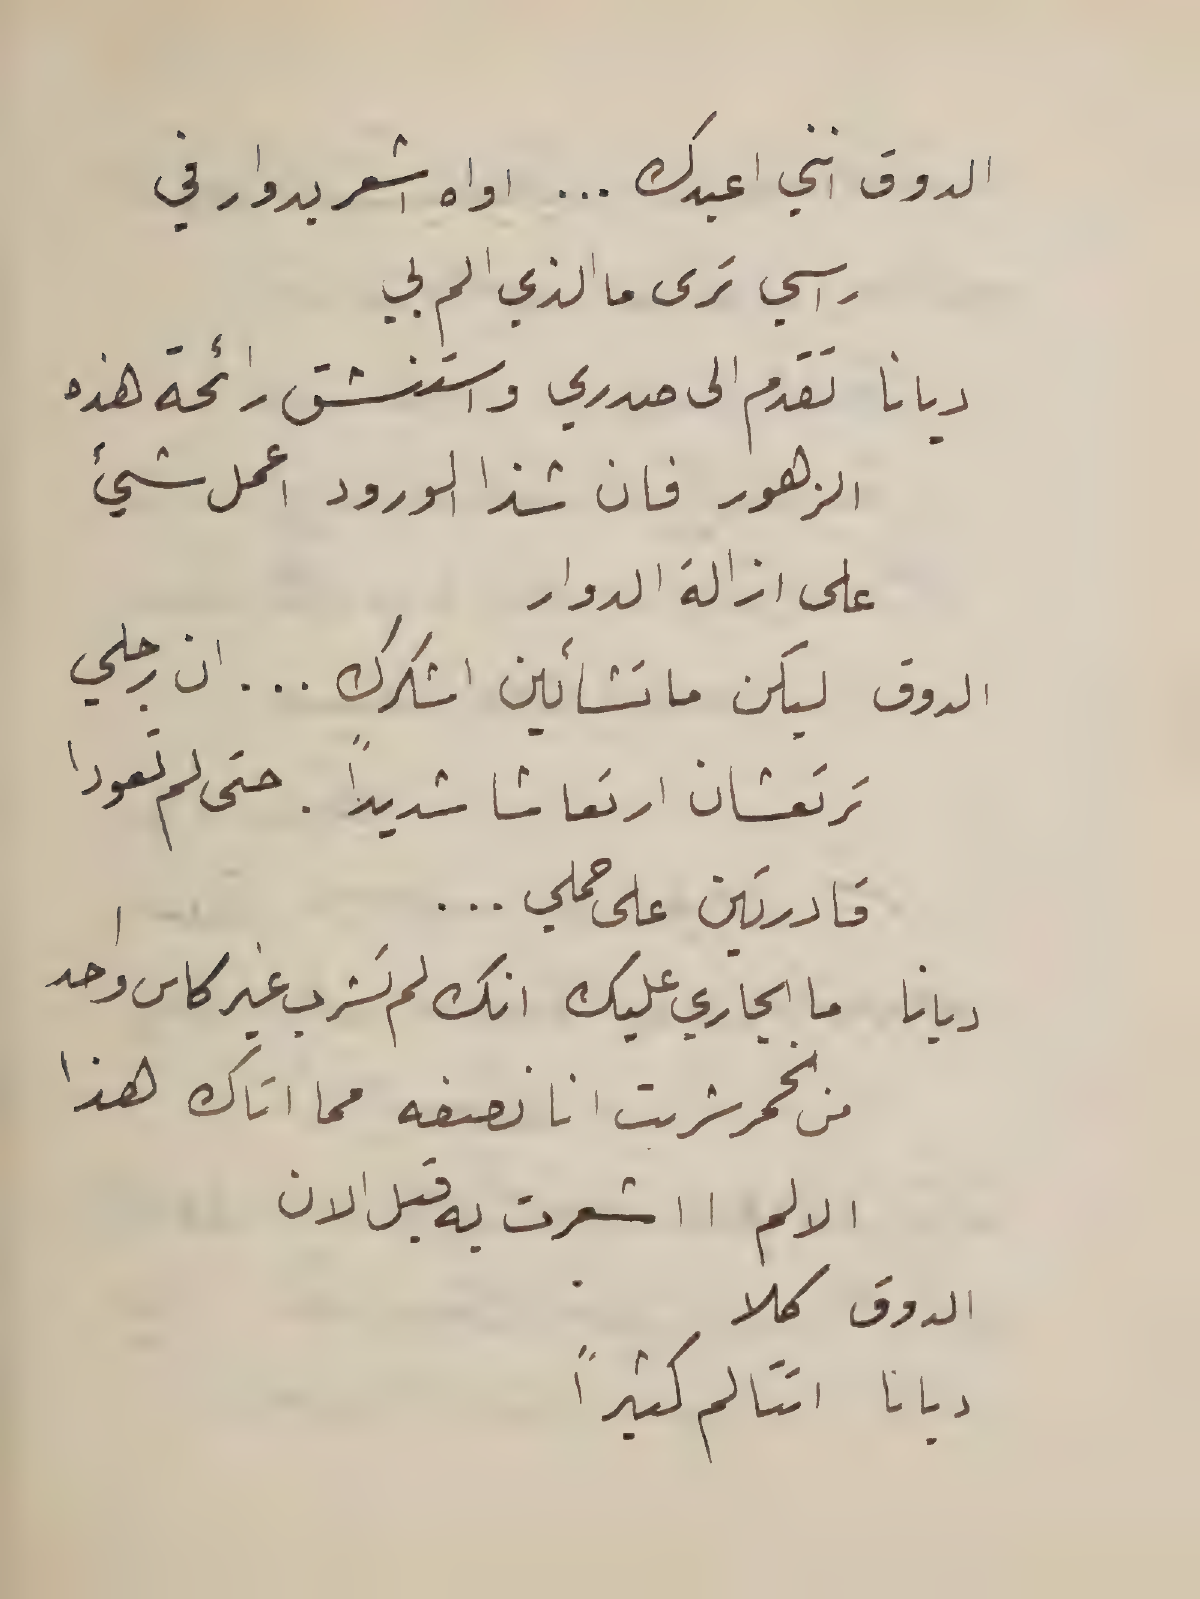 الدوق انني اعبدك ... اواه اشعر بدوار في
راسي ترى ما الذي الم بي
ديانا تقدم الى صدري واستنشق رائحة هذه
الزهور فان شذا الورود اعمل شيئ
على ازالة الدوار
الدوق ليكن ما تشأين اشكرك ... ان رجلي
ترتعشان ارتعاشا شديداً . حتى لم تعودا
قادرتين على حملي ...
ديانا ما الجاري عليك انك لم تشرب غير كاس واحد
من الخمر شربت انا نصفه مما اتاك هذا
الالم ا اشعرت به قبل الان
الدوق كلا
ديانا اتتالم كثيراً